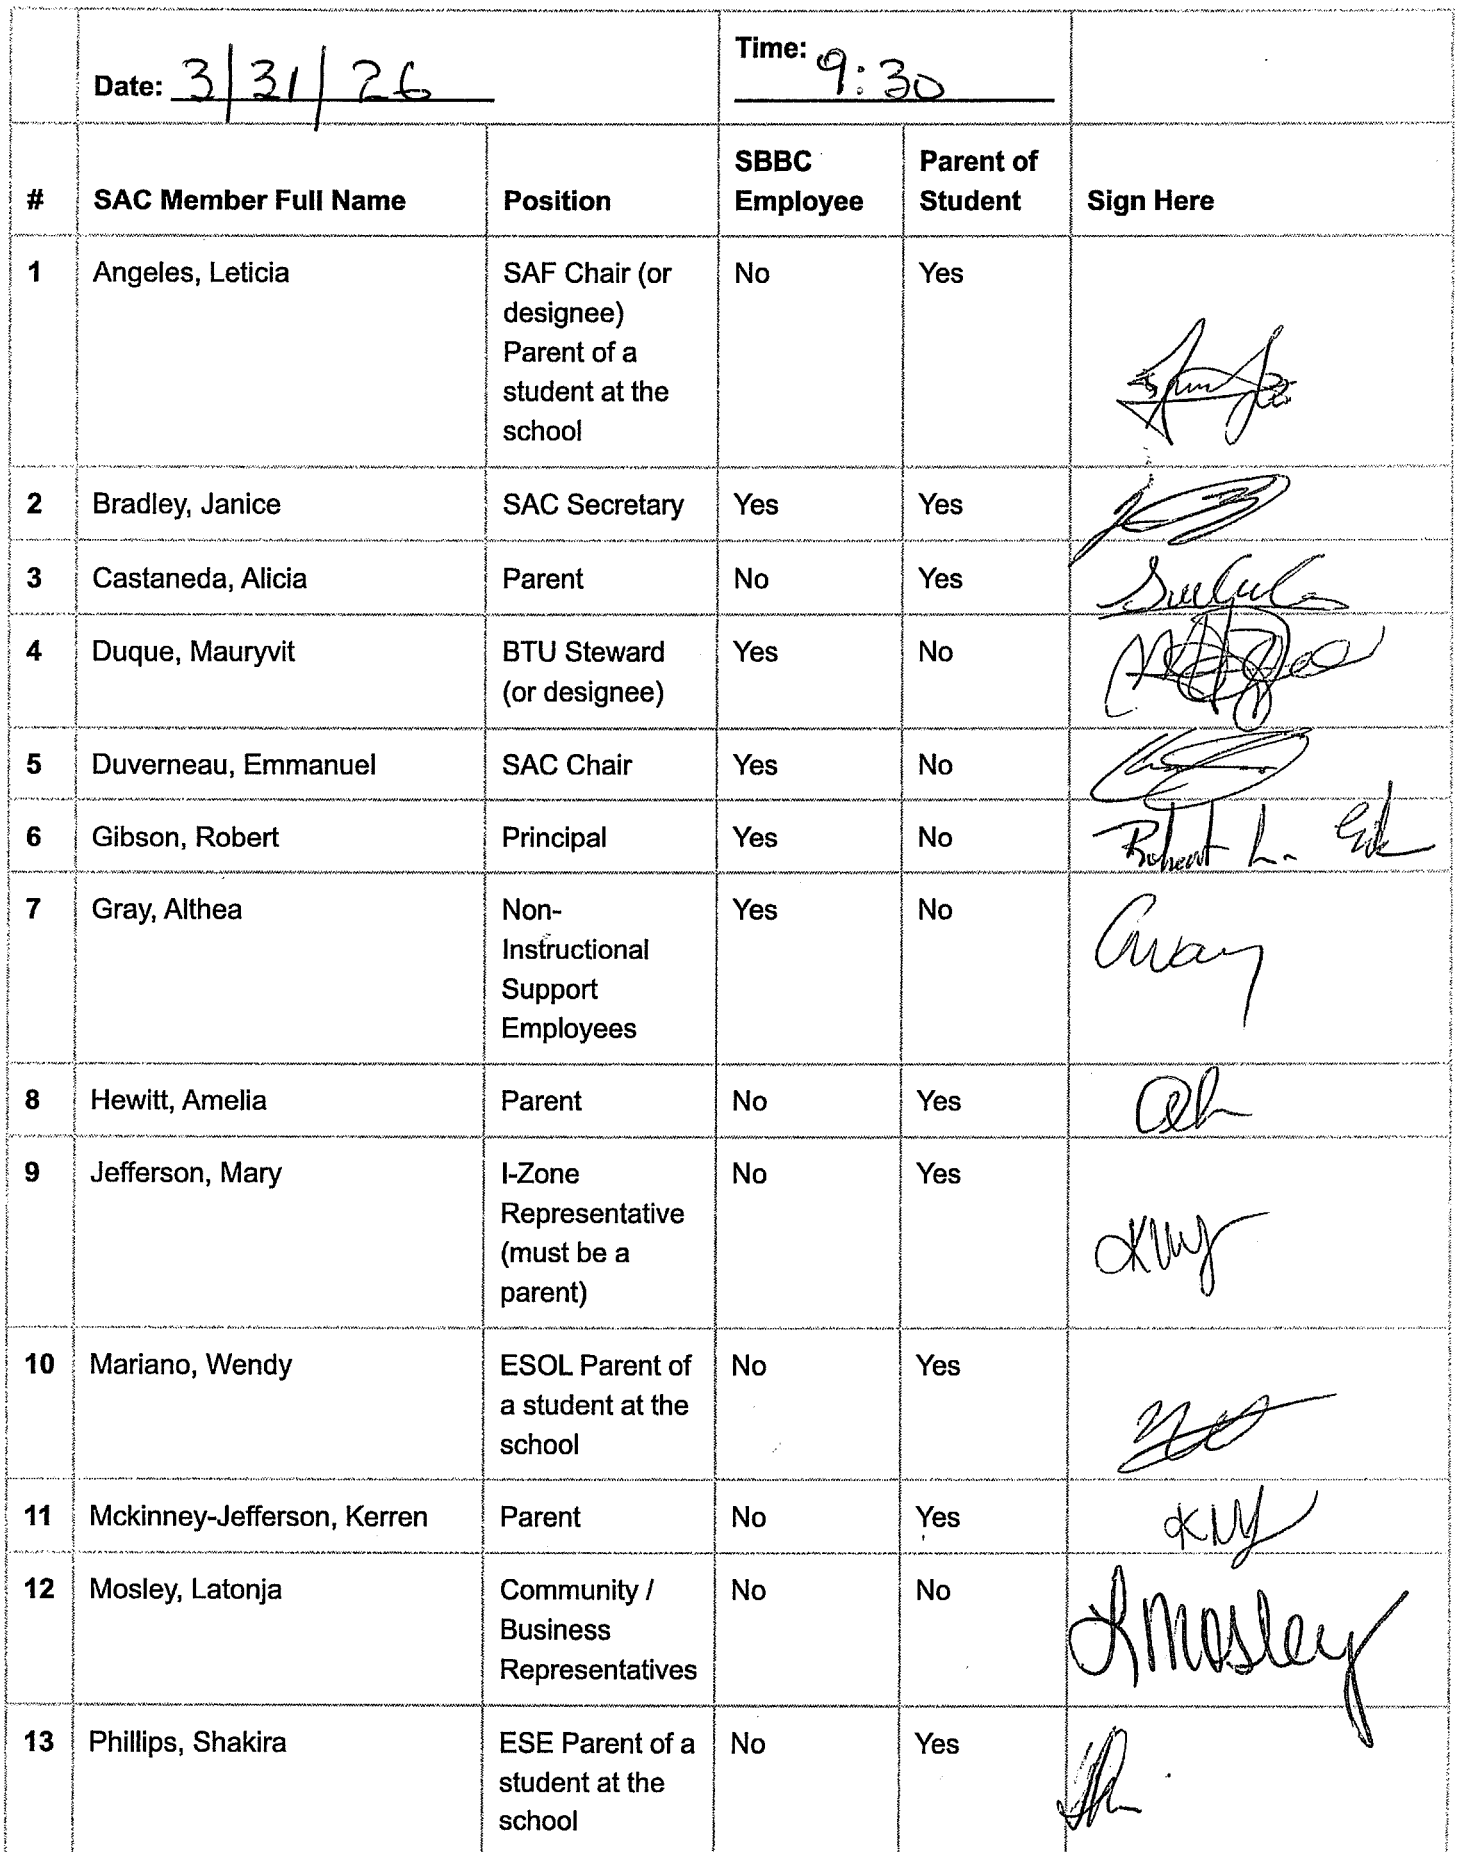 Date: 3/31/26 Time: 9:30
# SAC Member Full Name Position SBBC Employee Parent of Student Sign Here
1 Angeles, Leticia SAF Chair (or No Yes
designee)
Parent of a
student at the
school
2 Bradley, Janice SAC Secretary Yes Yes
3 Castaneda, Alicia Parent No Yes
4 Duque, Mauryvit BTU Steward Yes No
(or designee)
5 Duverneau, Emmanuel SAC Chair Yes No
6 Gibson, Robert Principal Yes No Robert L.
7 Gray, Althea Non- Yes No
Instructional
Support
Employees
8 Hewitt, Amelia Parent No Yes
9 Jefferson, Mary I-Zone No Yes
Representative
(must be a
parent)
10 Mariano, Wendy ESOL Parent of No Yes
a student at the
school
11 Mckinney-Jefferson, Kerren Parent No Yes KMJ
12 Mosley, Latonja Community / No No LMosley
Business
Representatives
13 Phillips, Shakira ESE Parent of a No Yes
student at the
school